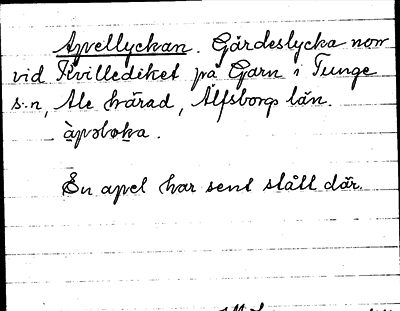 Apellyckan. Gärdeslycka norr
vid Kvillediket på Garn i Tunge
s:n, Ale härad, Älfsborgs län.
àpəlⱺka.
En apel har sent stått där.